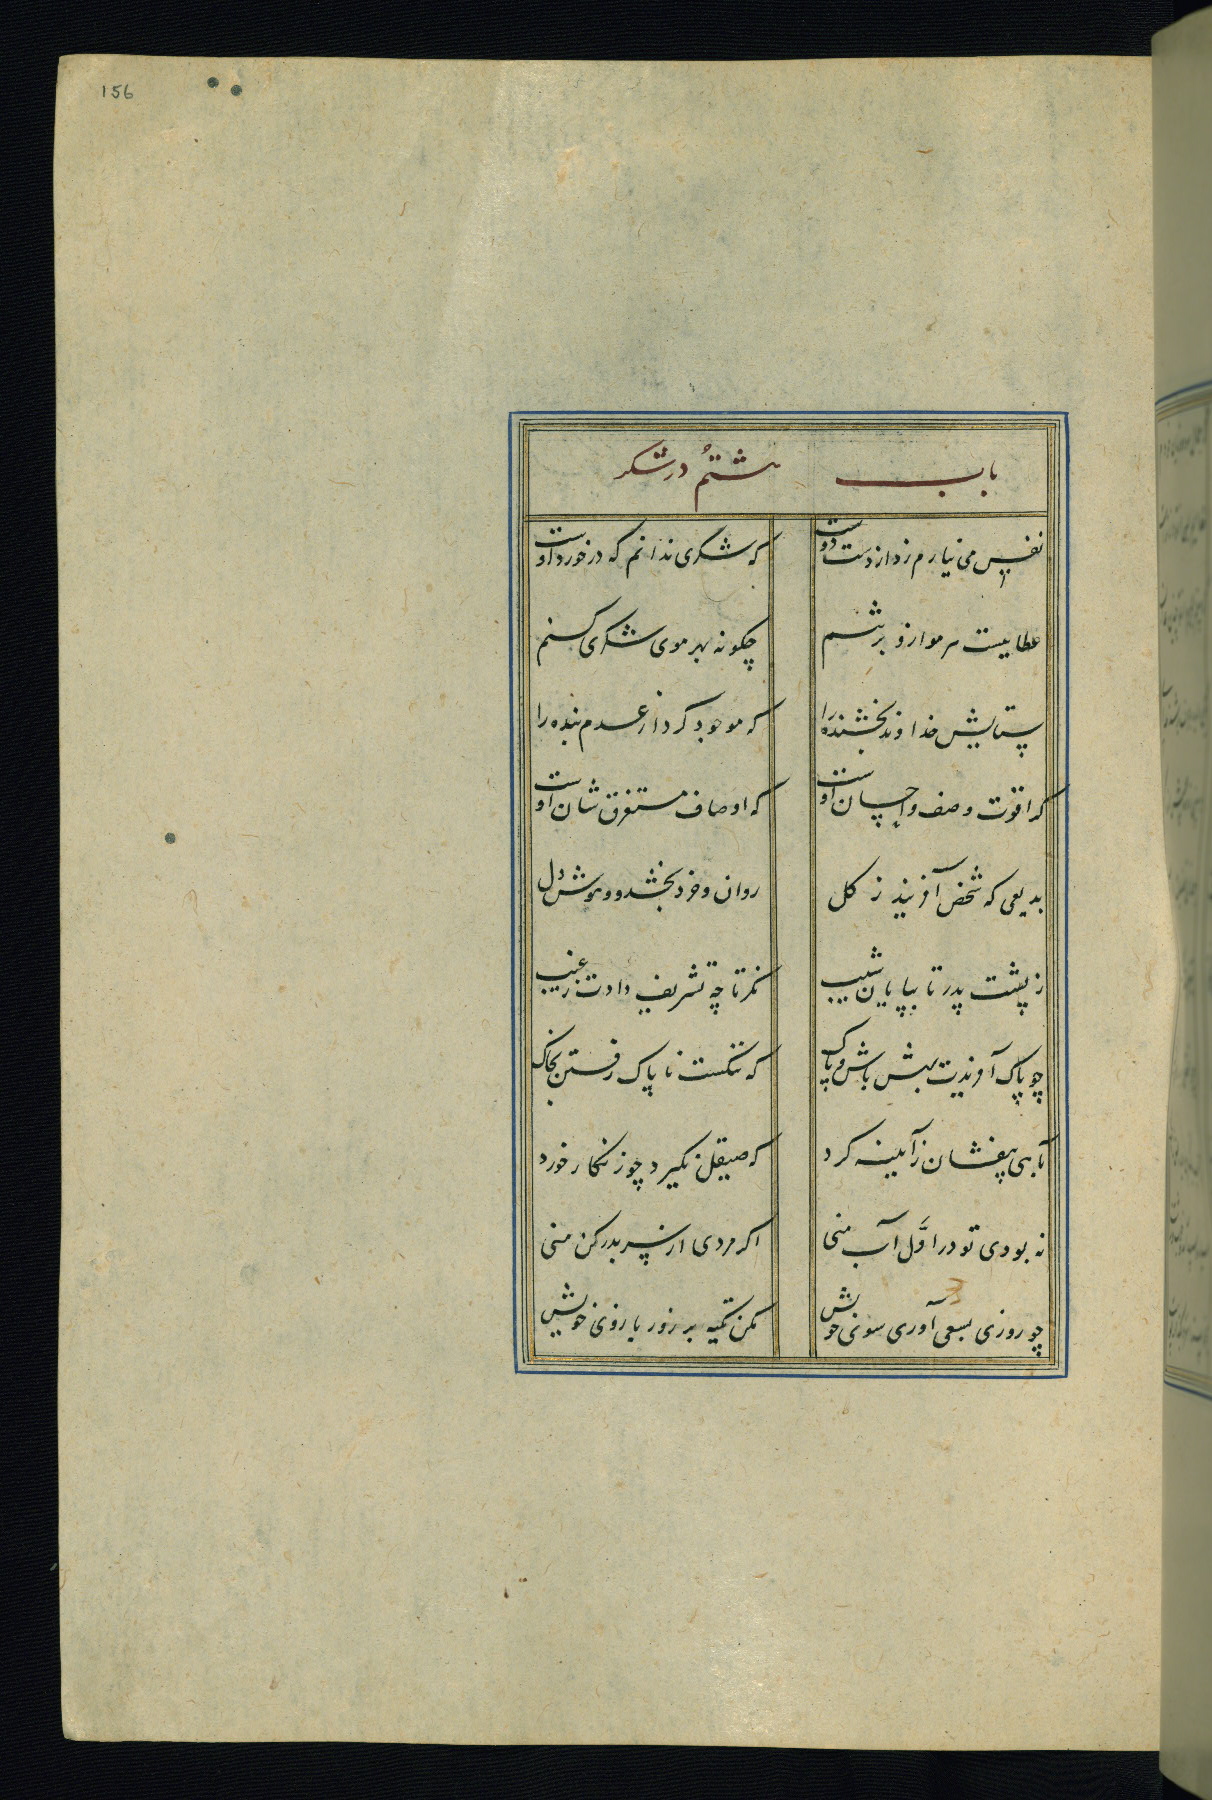 156
باب هشتم در شکر
نفس می نیارم زد از دست دوست که شکری ندانم که در خورد اوست
عطاییست سر مو ازو بر تنم چکونه بهر موی شکری کنم
ستایش خداوند بخشنده را که موجود کرد از عدم بنده را
کرا قوت وصف و احسان اوست که اوصاف مستغرق شان اوست
بدیعی که شخص آفریند ز کل روان و خرد بخشد و هوش و دل
ز پشت پدر تا بپایان شیب نکر تا چه تشریف دادت ز غیب
چو پاک آفریدت بهش باش و پاک که ننکست ناپاک رفتن بخاک
بیفشان ز آیینه کرد که صیقل نکیرد چو زنکار خورد
نه بودی تو در اوّل آب منی اکر مردی از سر بدر کن منی
چو روزی بسعی آوری سوی خویش مکن تکیه بر زور بازوی خویش